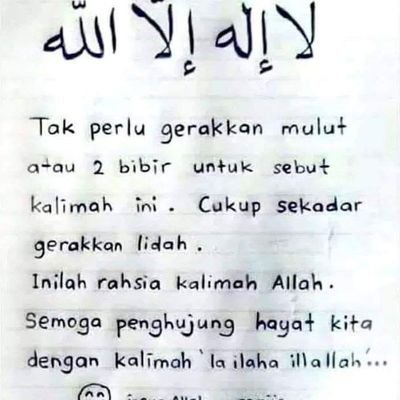 لا إله إلّا اللّه
Tak perlu gerakkan mulut
atau 2 bibir untuk sebut
kalimah ini. Cukup sekadar
gerakkan lidah.
Inilah rahsia kalimah Allah.
Semoga penghujung hayat kita
dengan kalimah 'la ilaha illallah'...